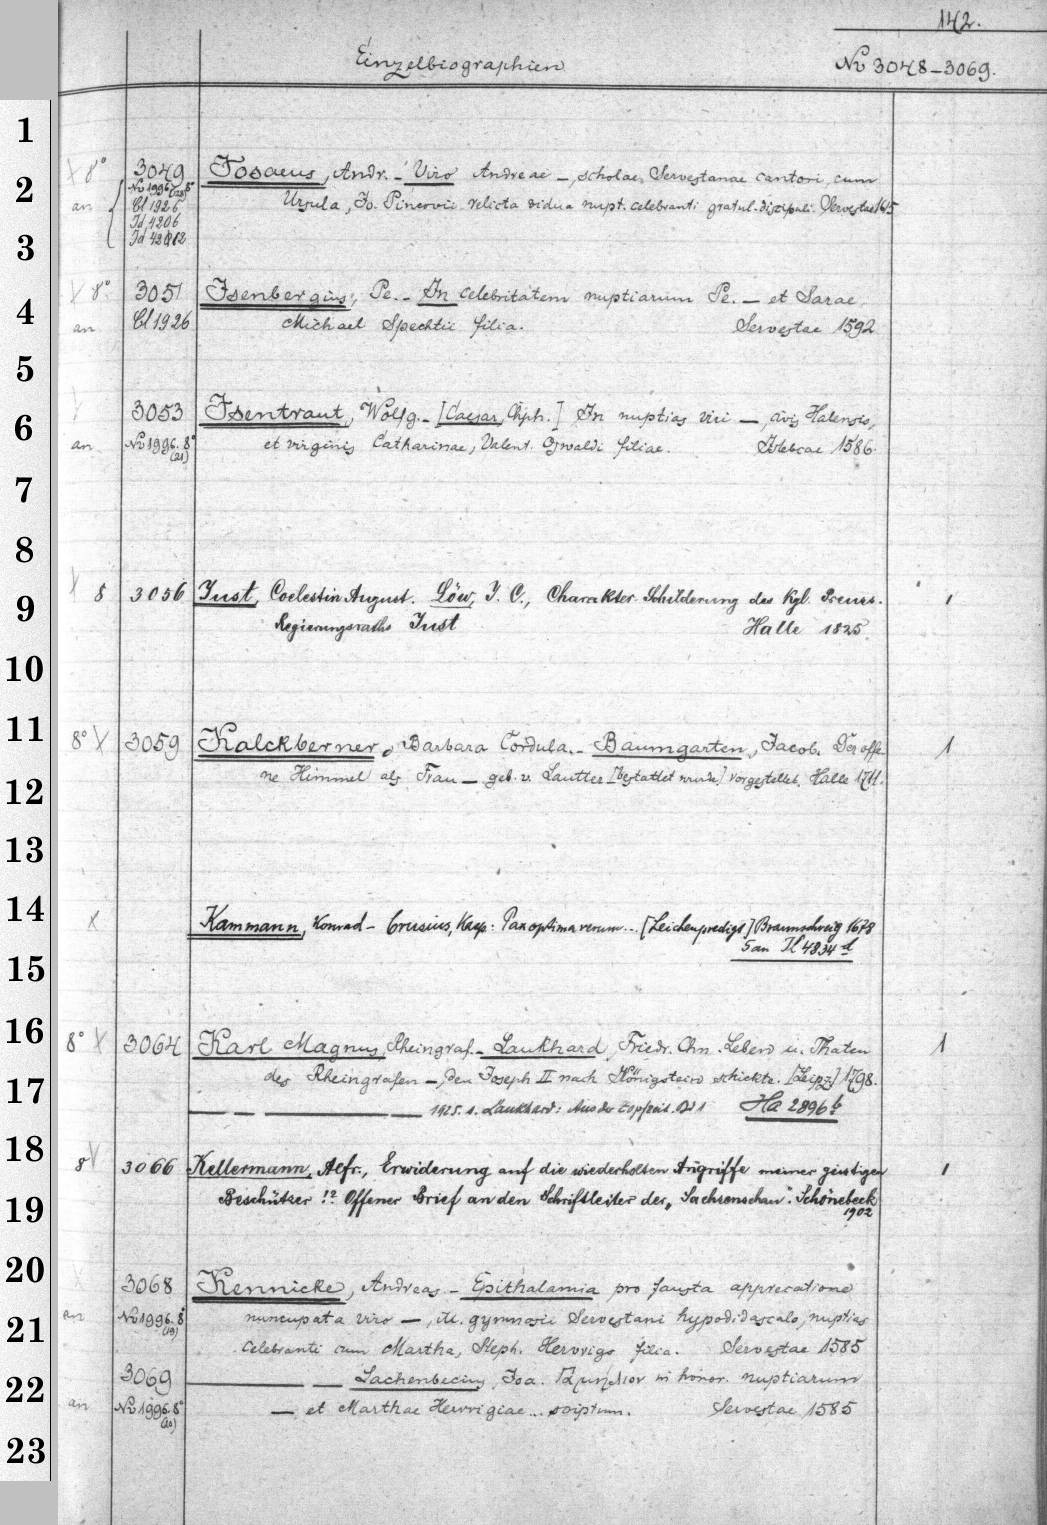 142.
Einzelbiographien
No 3048-3069.
1
2
3
4
5
6
7
8
9
10
11
12
13
14
15
16
17
18
19
20
21
22
23
X 8° 3049 Josaeus, Andr. - Viro Andreae -, scholae Servestanae cantori, cum
an No 1996, 8°
Cl 1926
Id 4206
Ursula, Jo. Pinervii relicta vidua nupt. celebranti gratul. discipuli. Servestae 1615
X 8° 3051 Isenbergius, Pe. - In celebritatem nuptiarum Pe. - et Sarae
an Cl 1926 Michael Spechtii filia. Servestae 1592
3053 Isentraut, Wolfg. - [Caesar, Chph.] In nuptias viri -, civis Halensis,
an No 1996. 8° (21) et virginis Catharinae, Valent. Oswaldi filiae. Islebiae 1586.
8 3056 Just, Coelestin August. Löw, J. C., Charakter-Schilderung des Kgl. Preuss. 1
Regierungsraths Just Halle 1825.
8° X 3059 Kalckberner, Barbara Cordula. - Baumgarten, Jacob. Der offe- 1
ne Himmel als Frau - geb. v. Lautter [bestattet wurde] vorgestellet. Halle 1711.
X Kammann, Konrad - Crusius, Kasp: Pax optima rerum... [Leichenpredigt] Braunschweig 1678
5 an Il 4834 d
8° X 3064 Karl Magnus, Rheingraf. - Laukhard, Friedr. Chn. Leben u. Thaten 1
des Rheingrafen -, den Joseph II nach Königstein schickte. [Leipz.] 1798.
— — — — 1925. 1. Laukhard: Aus der Zopfzeit. Bd 1 Ha 2896 b
8 3066 Kellermann, Alfr., Erwiderung auf die wiederholten Angriffe meiner geistigen 1
Beschützer !? Offener Brief an den Schriftleiter der „Sachsenschau". Schönebeck
1902
3068 Kennicke, Andreas. - Epithalamia pro fausta apprecatione
an No 1996. 8° (19) nuncupata viro -, ill. gymnasii Servestani hypodidascalo, nuptias
celebranti cum Martha, Steph. Hervrigs filia. Servestae 1585
3069 — — Lachenbecius, Joa. in honor. nuptiarum
an No 1996. 8° (20) - et Marthae Hervrigiae... scriptum. Servestae 1585